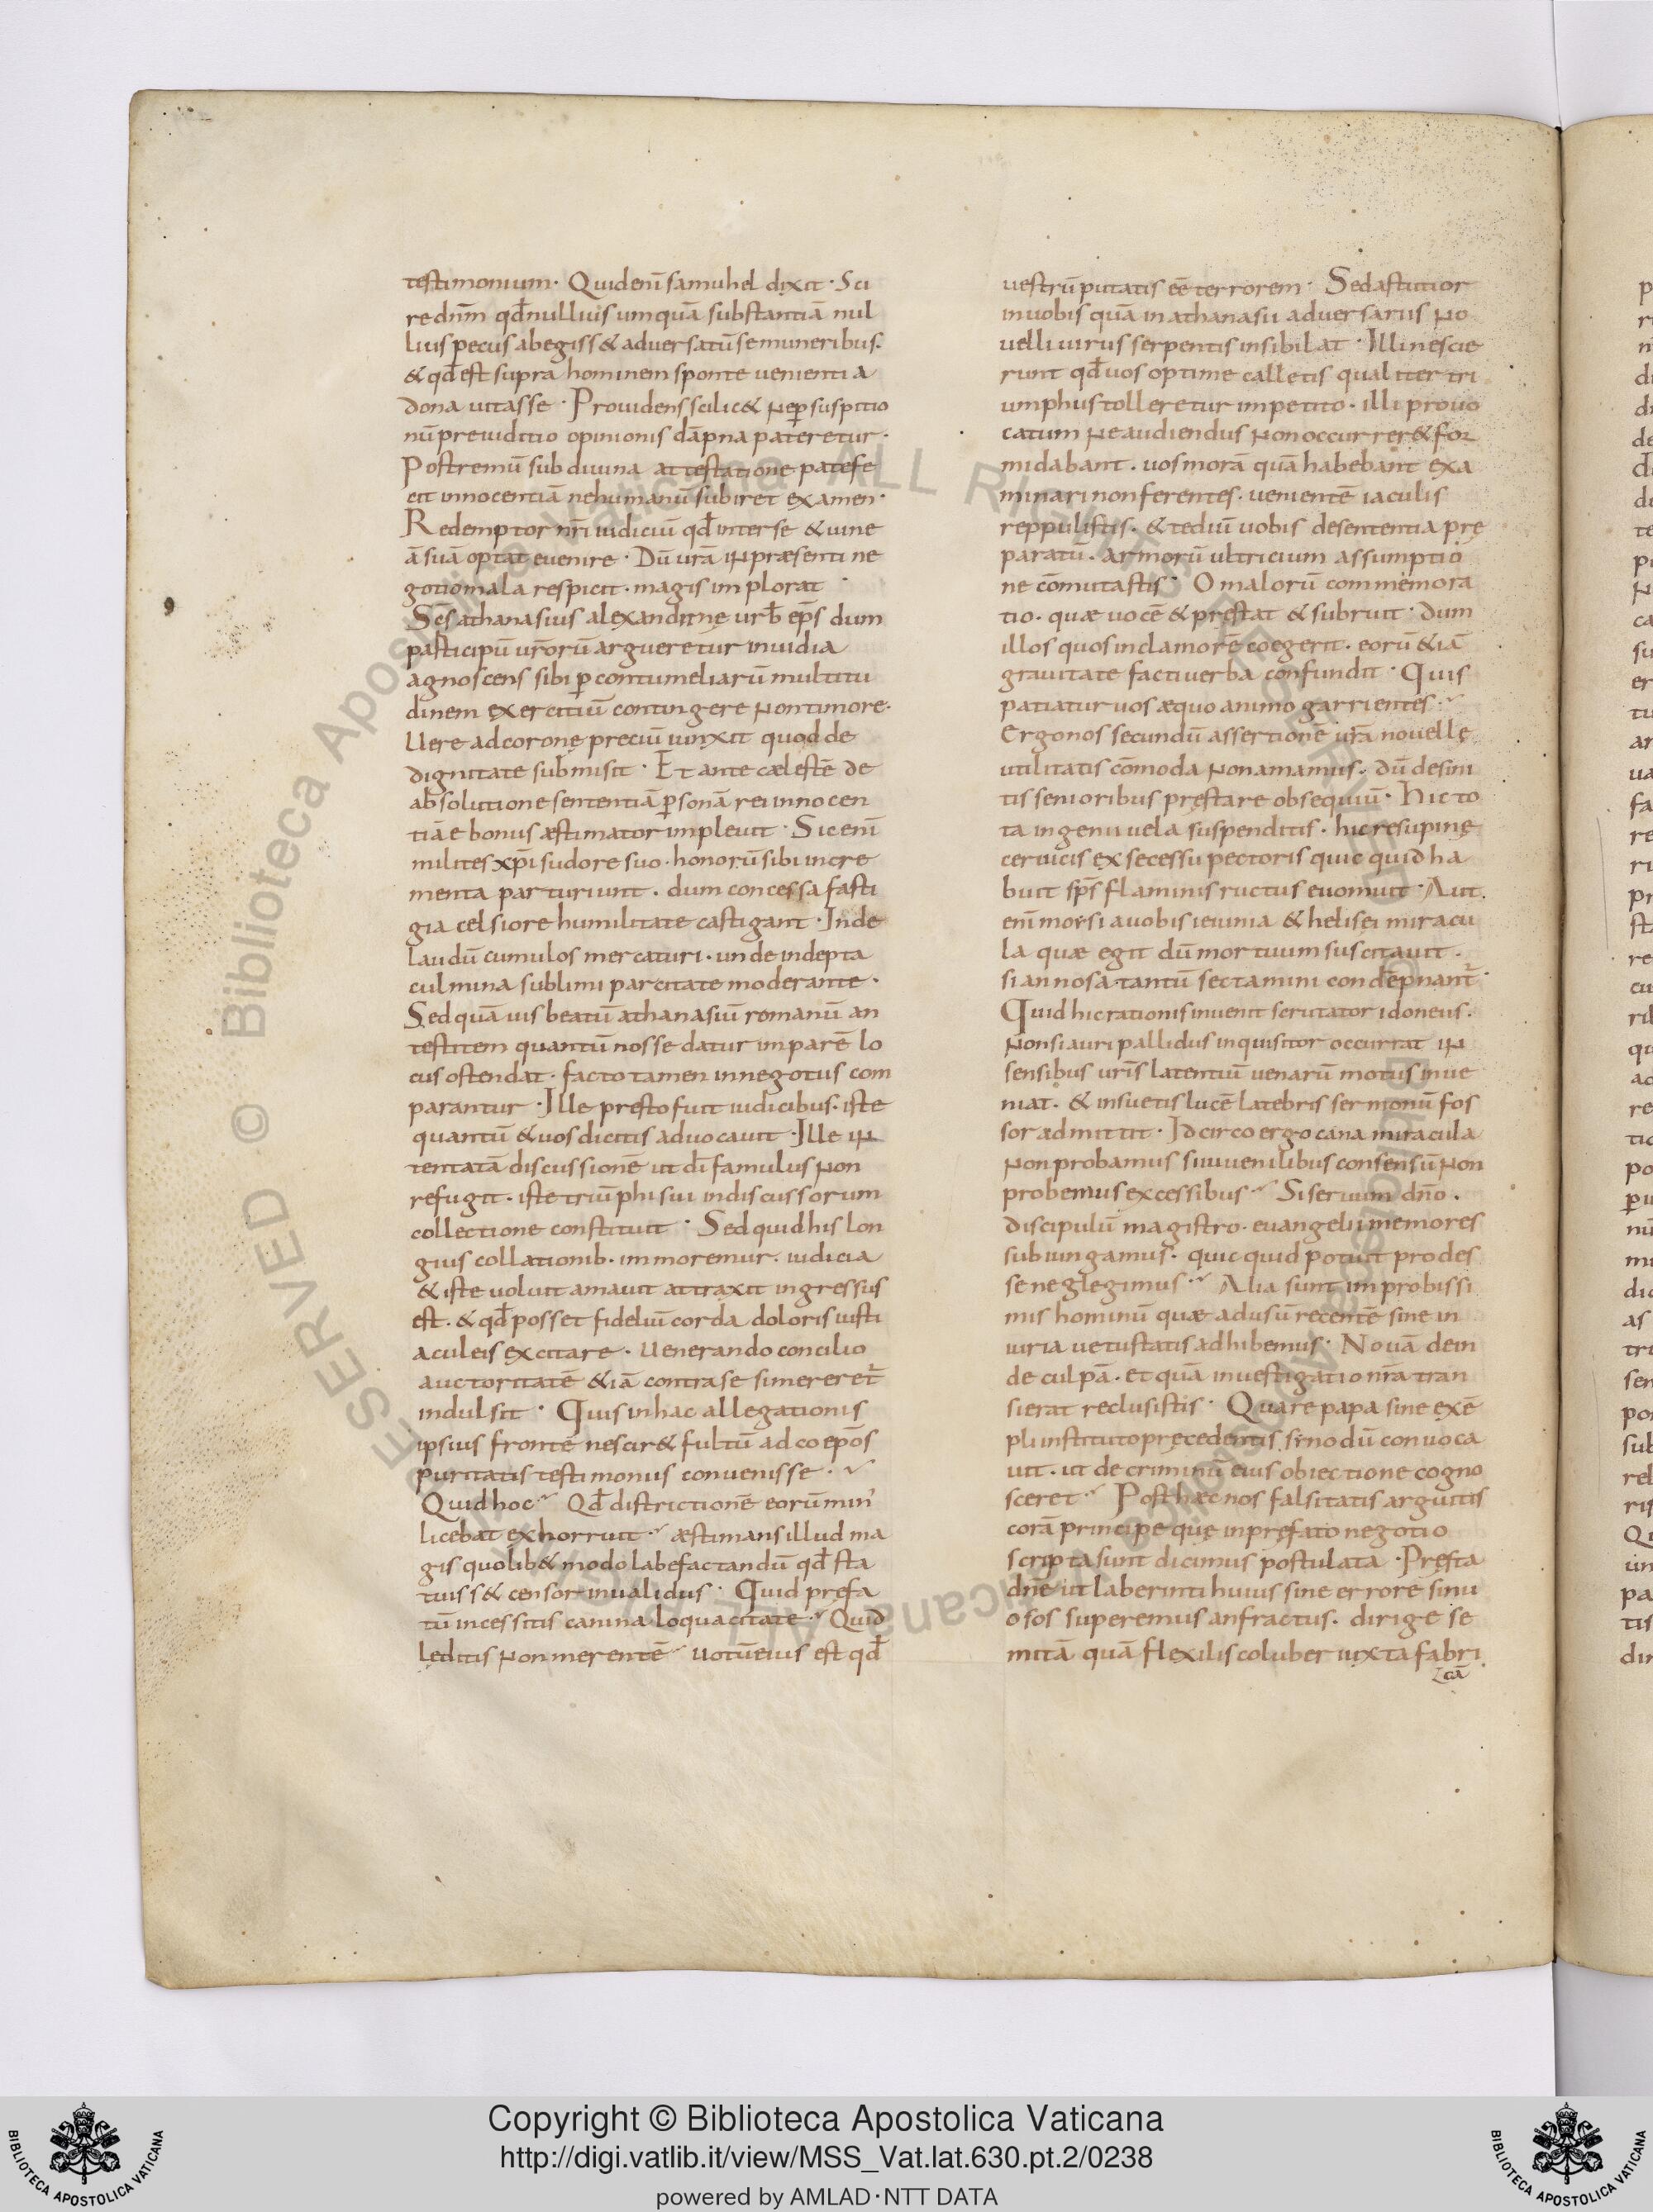 testimonium. Quidenī samuhel dixit. Sci
re dn̄m qd̄ nullius umquā substantiā nul
lius pecus abegiss& adversatū se muneribus.
& qd̄ est supra hominem sponte venientia
dona vitasse. Providens scilic& ne p̱ suspitio
nū preiuditio opinionis dāpna pateretur.
Postremū sub divina attestatione patefe
cit innocentiā ne humanū subiret examen.
Redemptor nr̄i iudiciū qd̄ inter se & vine
ā suā optat evenire. Dū vrā in præsenti ne
gotio mala respicit. magis implorat
Sc̄s athanasius alexandrinę urb̄ ep̄s dum
participū vr̄orū argueretur invidia
agnoscens sibi p̱ contumeliarū multitu
dinem exercitiū contingere non timore.
Vere ad coronę preciū iunxit quod de
dignitate submisit. Et ante cælestē de
absolutione sententiā p̱sonā rei innocen
tiā e bonus æstimator implevit. Sic enī
milites xp̄i sudore suo. honorū sibi incre
menta parturiunt. dum concessa fasti
gia celsiore humilitate castigant. Inde
laudū cumulos mercaturi. unde indepta
culmina sublimi parcitate moderante.
Sed quā vis beatū athanasiū romanū an
testitem quantū nosse datur imparē lo
cus ostendat. facto tamen in negotiis com
parantur. Ille presto fuit iudicibus. iste
quantū & vos dicitis advocavit. Ille in
tentatā discussionē ut dī famulus non
refugit. iste triūphi sui indiscussorum
collectione constituit. Sed quid his lon
gius collationib. immoremur. iudicia
& iste voluit amavit attraxit ingressus
est. & qd̄ posset fideliū corda doloris iusti
aculeis excitare. Venerando concilio
auctoritatē &iā contra se si mereret̄
indulsit. Quis in hac allegationis
ipsius frontē nescir& fultū ad coep̄os
puritatis testimoniis convenisse.
Quid hoc Qd̄ districtionē eorū min'
licebat exhorruit. æstimans illud ma
gis quolib& modo labefactandū qd̄ sta
tuiss& censor invalidus. Quid prefa
tū incessitis canina loquacitate. Quid
leditis non merentē votū eius est qd̄
vestrū putatis eē terrorem. Sed astutior
in vobis quā in athanasii adversariis no
velli virus serpentis insibilat. Illi nescie
runt qd̄ vos optime calletis qualiter tri
umphus tolleretur impetito. illi provo
catum ne audiendus non occurrer& for
midabant. vos morā quā habebant exa
minari non ferentes. venientē iaculis
reppulistis. & tediū vobis desententia prę
paratū. armorū ultricium assumptio
ne cōmutastis. O malorū commemora
tio. quæ vocē & prestat & subruit. dum
illos quos in clamorē coegerit. eorū &iā
gravitate facti verba confundit. Quis
patiatur vos æquo animo garrientes.
Ergo nos secundū assertionē vr̄ā novellę
utilitatis cōmoda non amamus. dū desini
tis senioribus pręstare obsequiū. Hic to
ta ingenii vela suspenditis. hic resupinę
cervicis ex secessu pectoris quicquid ha
buit sp̄s flaminis ructus evomuit. Aut
enī morsi a vobis ieiunia & helisei miracu
la quæ egit dū mortuum suscitavit.
si annosa tantū sectamini condēpnant̄.
Quid hic rationis invenit scrutator idoneus.
Non si auri pallidus inquisitor occurrat in
sensibus vr̄is latentiū venarū motus inve
niat. & insuetis lucē latebris sermonū fos
sor admittit. Idcirco ergo cana miracula
non probamus si iuvenilibus consensū non
probemus excessibus Si servum dn̄o.
discipulū magistro. evangelii memores
subiungamus. quicquid potuit prodes
se neglegimus. Alia sunt improbissi
mis hominū quæ ad usū recentē sine in
iuria vetustatis adhibemus. Novā dein
de culpā. et quā investigatio nr̄a tran
sierat reclusistis. Quare papa sine exē
pli instituto precedentis sinodū convoca
vit. ut de criminū eius obiectione cogno
sceret Post hæc nos falsitatis arguitis
corā principe que in prefato negotio
scripta sunt dicimus postulata. Pręsta
dn̄e ut laberinti huius sine errore sinu
osos superemus anfractus. dirige se
mitā quā flexilis coluber iuxta fabri
cā
SERVED © Biblioteca Apostolica Vaticana ALL RIGHTS RESERVED © Biblioteca Apostolica Vaticana ALL
Copyright © Biblioteca Apostolica Vaticana
http://digi.vatlib.it/view/MSS_Vat.lat.630.pt.2/0238
powered by AMLAD·NTT DATA
BIBLIOTECA APOSTOLICA VATICANA
BIBLIOTECA APOSTOLICA VATICANA